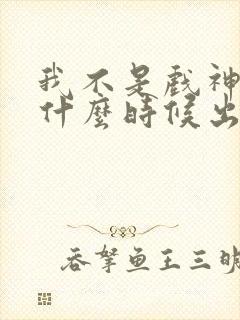 我不是戲神
什麼時候出
吞拏魚王三明